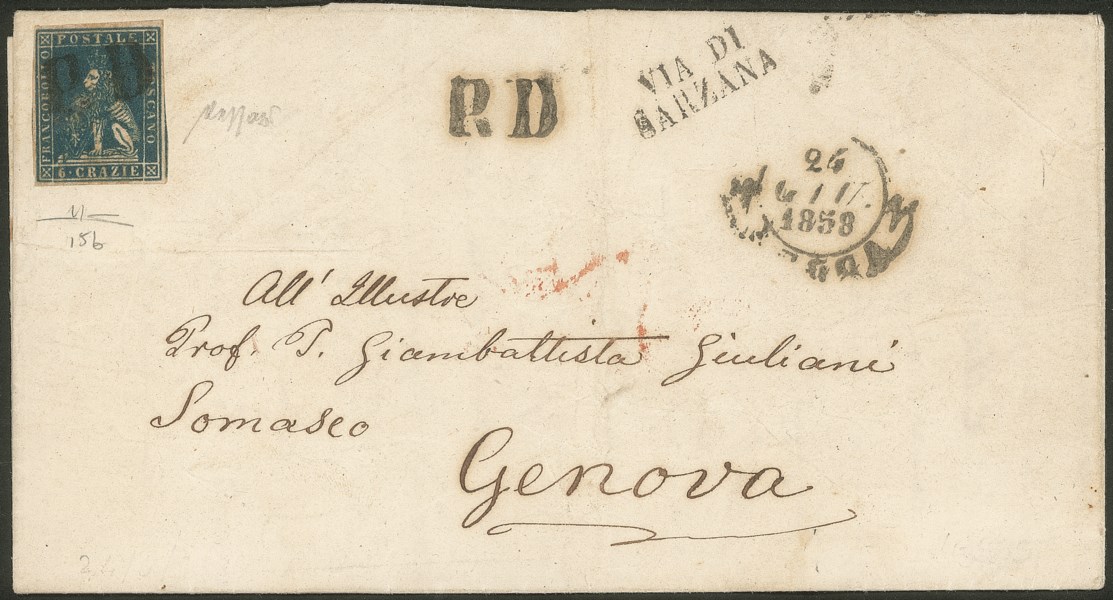 FRANCOBOLLO
POSTALE
TOSCANO
6·CRAZIE
P.D
P.D
VIA DI
SARZANA
26
GIU.
1858
15b
All' Illustre
Prof. P. Giambattista Giuliani
Somasco
Genova